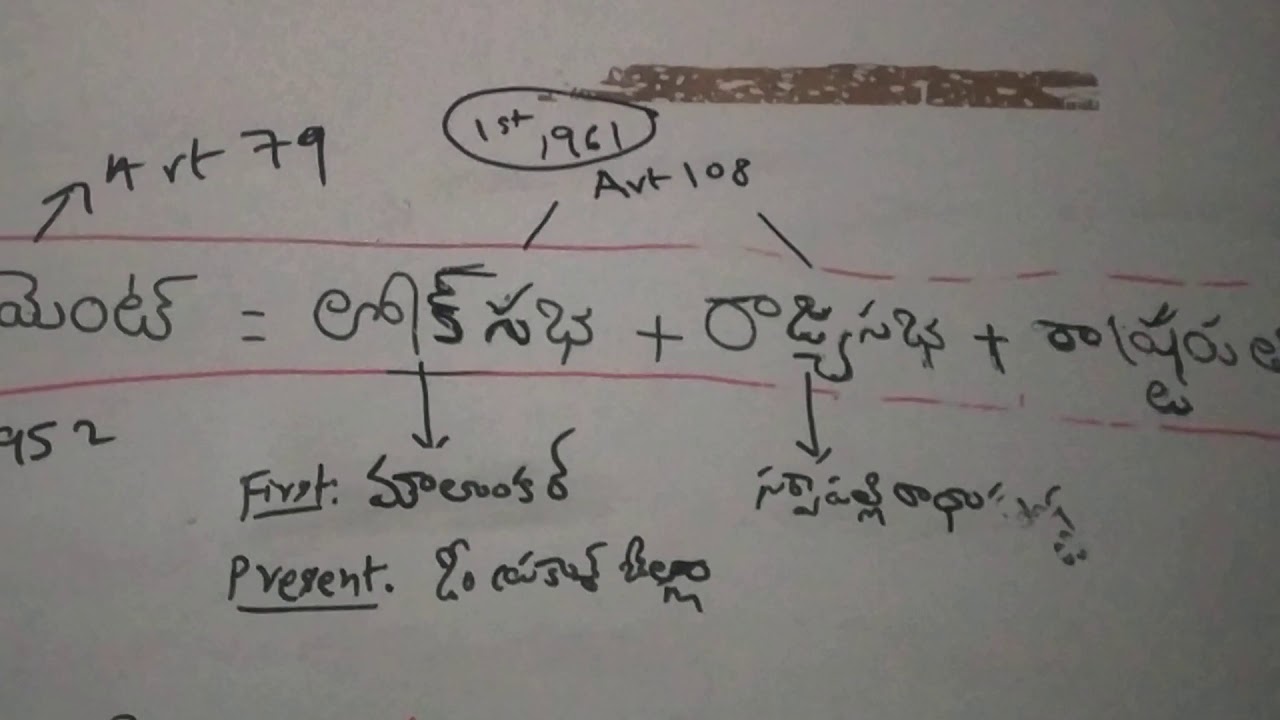 1st, 1961
Art 79
Art 108
మెంట్ = లోక్ సభ + రాజ్యసభ + రాష్ట్రప
952
First: మావలంకర్ సర్వేపల్లి రాధాకృష్ణ
Present. ఓం బిర్లా